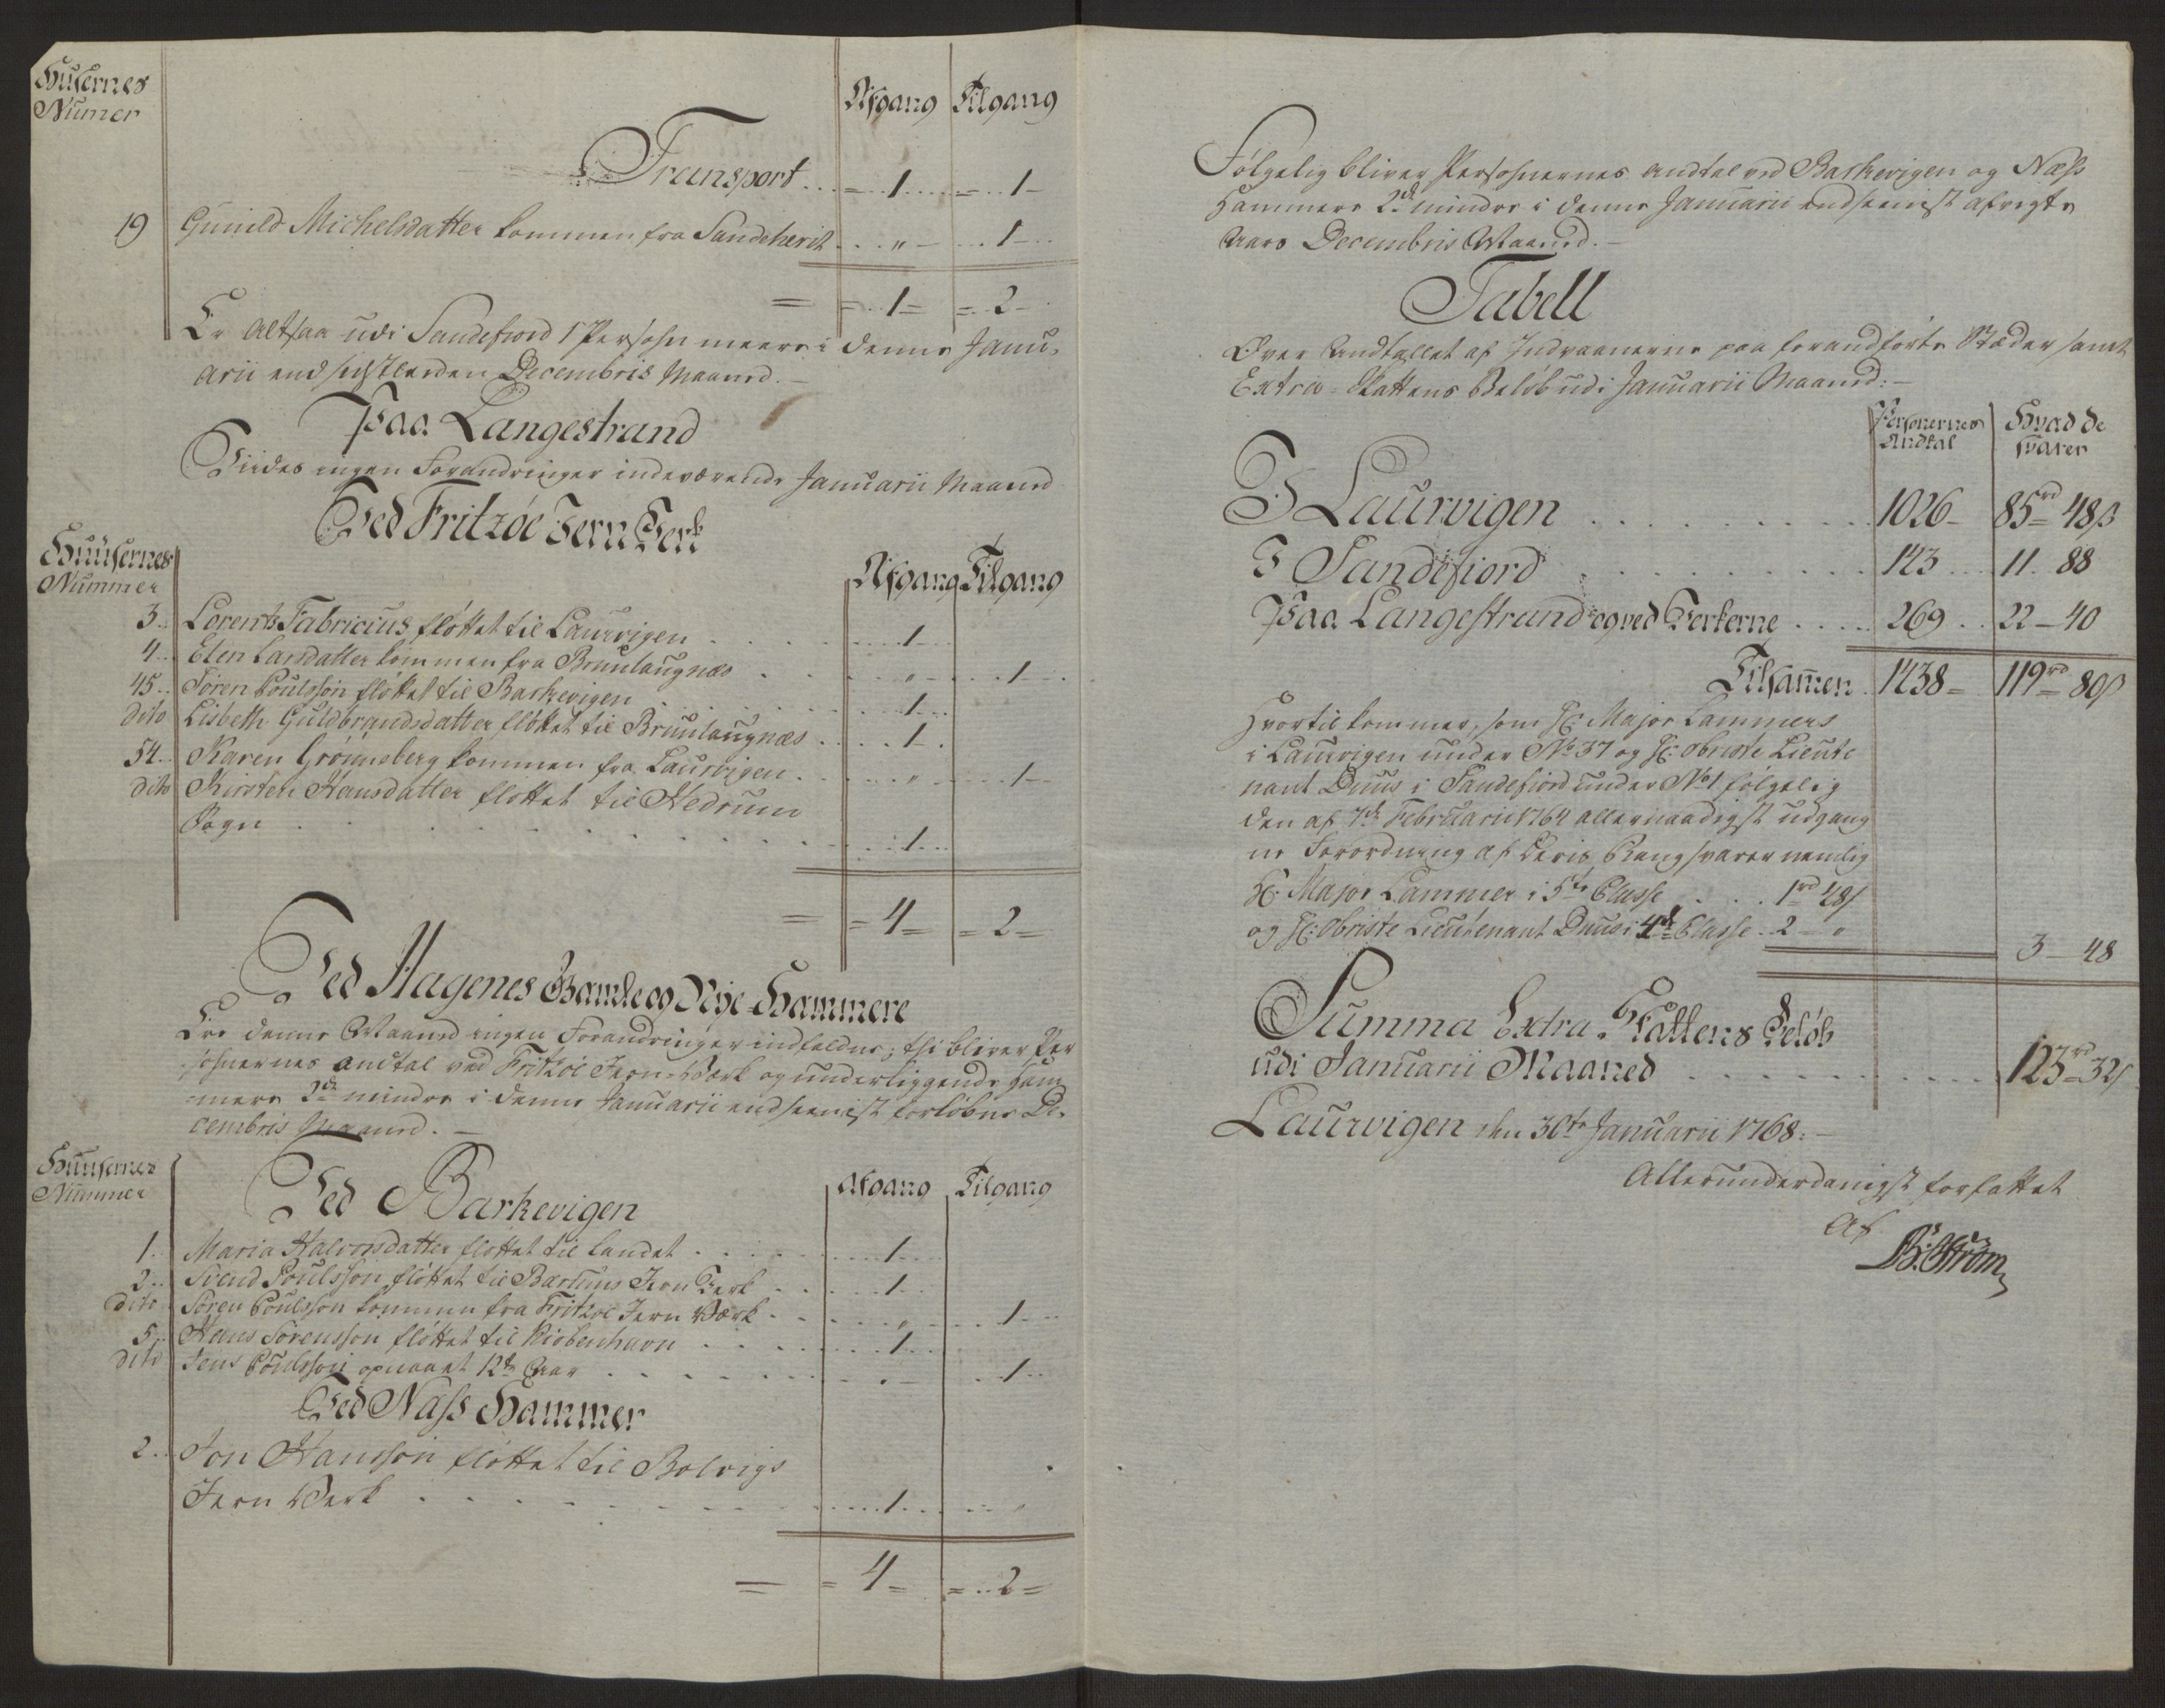 Husernes
Numer
Afgang Tilgang
Transport . . = . . 1 . . . = . . 1 –
19 Gunild Michelsdatter kommen fra Sandeherit . . . „ – . . . 1 – . .
= = . . 1 = = . . 2 –
Er altsaa udi Sandefiord 1 Persohn meere i denne Janu-
arii end sidstleeden Decembris Maaned. –
Paa Langestrand
Fiides ingen Forandringer indeværende Januarii Maaned
Ved Fritzöe Jern Verk
Huusernes
Nummer
Afgang Tilgang
3 . . Lorentz Fabricius flöttet til Laurvigen . . . . . . 1 . . .
4 . . Elen Larsdatter kommen fra Brunlaugnæs . . . . „ . . . . 1 – . .
45 . . Sören Poulsson flöttet til Barkevigen . . . . . . . 1 . . .
dito Lisbeth Guldbrandsdatter flöttet til Brunlaugnæs . . . . . 1 – .
54 . . Karen Grönneberg kommen fra Laurvigen . . . . . „ . . . . 1 – –
dito Kirsten Hansdatter flöttet til Hedrum
Sogn . . . . . . . . . . . 1 . . .
= = 4 = = 2 =
Ved Hagenes Gamle og Nÿe Hammere
Ere denne Maaned ingen Forandringer indfaldne; thi bliver Per
sohnernes Andtal ved Fritzöe Jern-Værk og underliggende Ham
mere 2de mindre i denne Januarii end seeniest forlöbne De-
cembris Maaned. –
Huusernes
Nummer
Ved Barkevigen
Afgang Tilgang
1 . . Maria Halvorsdatter flöttet til Landet . . . . . . . 1 . . .
2 . . Svend Poulsson flöttet til Bærums Jern Verk . . . . . 1 . . .
dito Sören Poulsson kommen fra Fritzöe Jern Værk . . . . . „ . . . . 1 . . .
5 . . Hans Sörensson flöttet til Kiöbenhavn . . . . . . . 1 . . .
dito Jens Poulsson opnaaet 12te Aar . . . . . . . . – . . 1 . . .
Ved Næss Hammer
2 . . Jon Hansson flöttet til Bolvigs
Jern Verk . . . . . . . . . . 1 . . . . . . „
= = 4 = = . . 2 =
Fölgelig bliver Persohnernes Andtal ved Barkevigen og Næss
Hammere 2de mindre i denne Januarii end seeniest afvigte
Aars Decembris Maaned. –
Tabell
Over Andtallet af Indvaanerne paa forandförte Stæder samt
Extra-Skattens Belöb udi Januarii Maaned: –
Personernes
Andtal
Hvad de
svarer
I Laurvigen . . . . . . . . . . 1026 – 85rd 48ß
I Sandefiord . . . . . . . . . . 143 . . . 11 . 88
Paa Langestrand og ved Verkerne . . . . 269 . . 22 – 40
Tilsammen . 1438 = 119rd 80ß
Hvortil kommer, som Hr: Major Lammers
i Laurvigen under No 37 og Hr: Obriste Lieute
nant Duus i Sandefiord under No 1 fölgelig
den af 7de Februarii 1764 allernaadigst udgang
ne Forordning af deris Rang svarer nemlig
Hr: Major Lammer i 5te Classe . . . 1rd 48ß
og Hr: Obriste Lieutenant Duus i 4de Classe . 2 – „
3 – 48
Summa Extra Skattens Belöb
udi Januarii Maaned . . . . . . . . . . . 123rd 32ß
Laurvigen den 30te Januarii 1768. –
Allerunderdanigst forfattet
Af